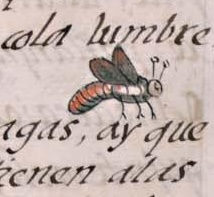 cola lumbre
agas, ay que
tienen alas